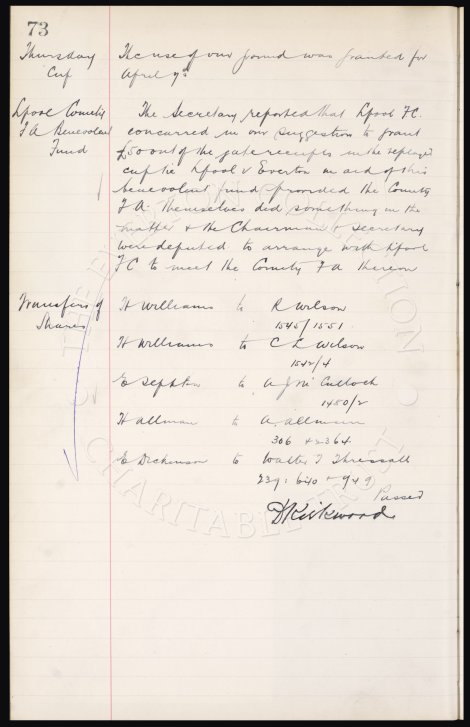 73
Thursday
Cup
The use of our ground was granted for
April 7th
Lpool County
F A Benevolent
Fund
The Secretary reported that Lpool F.C.
concurred in our suggestion to grant
£50 out of the gate receipts in the replayed
cup tie Lpool v Everton in aid of this
benevolent fund provided the County
F.A. themselves did something in the
matter & the Chairman & Secretary
were deputed to arrange with Lpool
FC to meet the County F A thereon
Transfers of
Shares
H Williams to R Wilson
1545/1551
H Williams to C L Wilson
1542/4
E Sephton to A J McCulloch
1450/2
H Allman to A. Allman
306 & 2364
E Dickinson to Walter T Thressall
239: 640 & 949
Passed
D Kirkwood
CHARITABLE